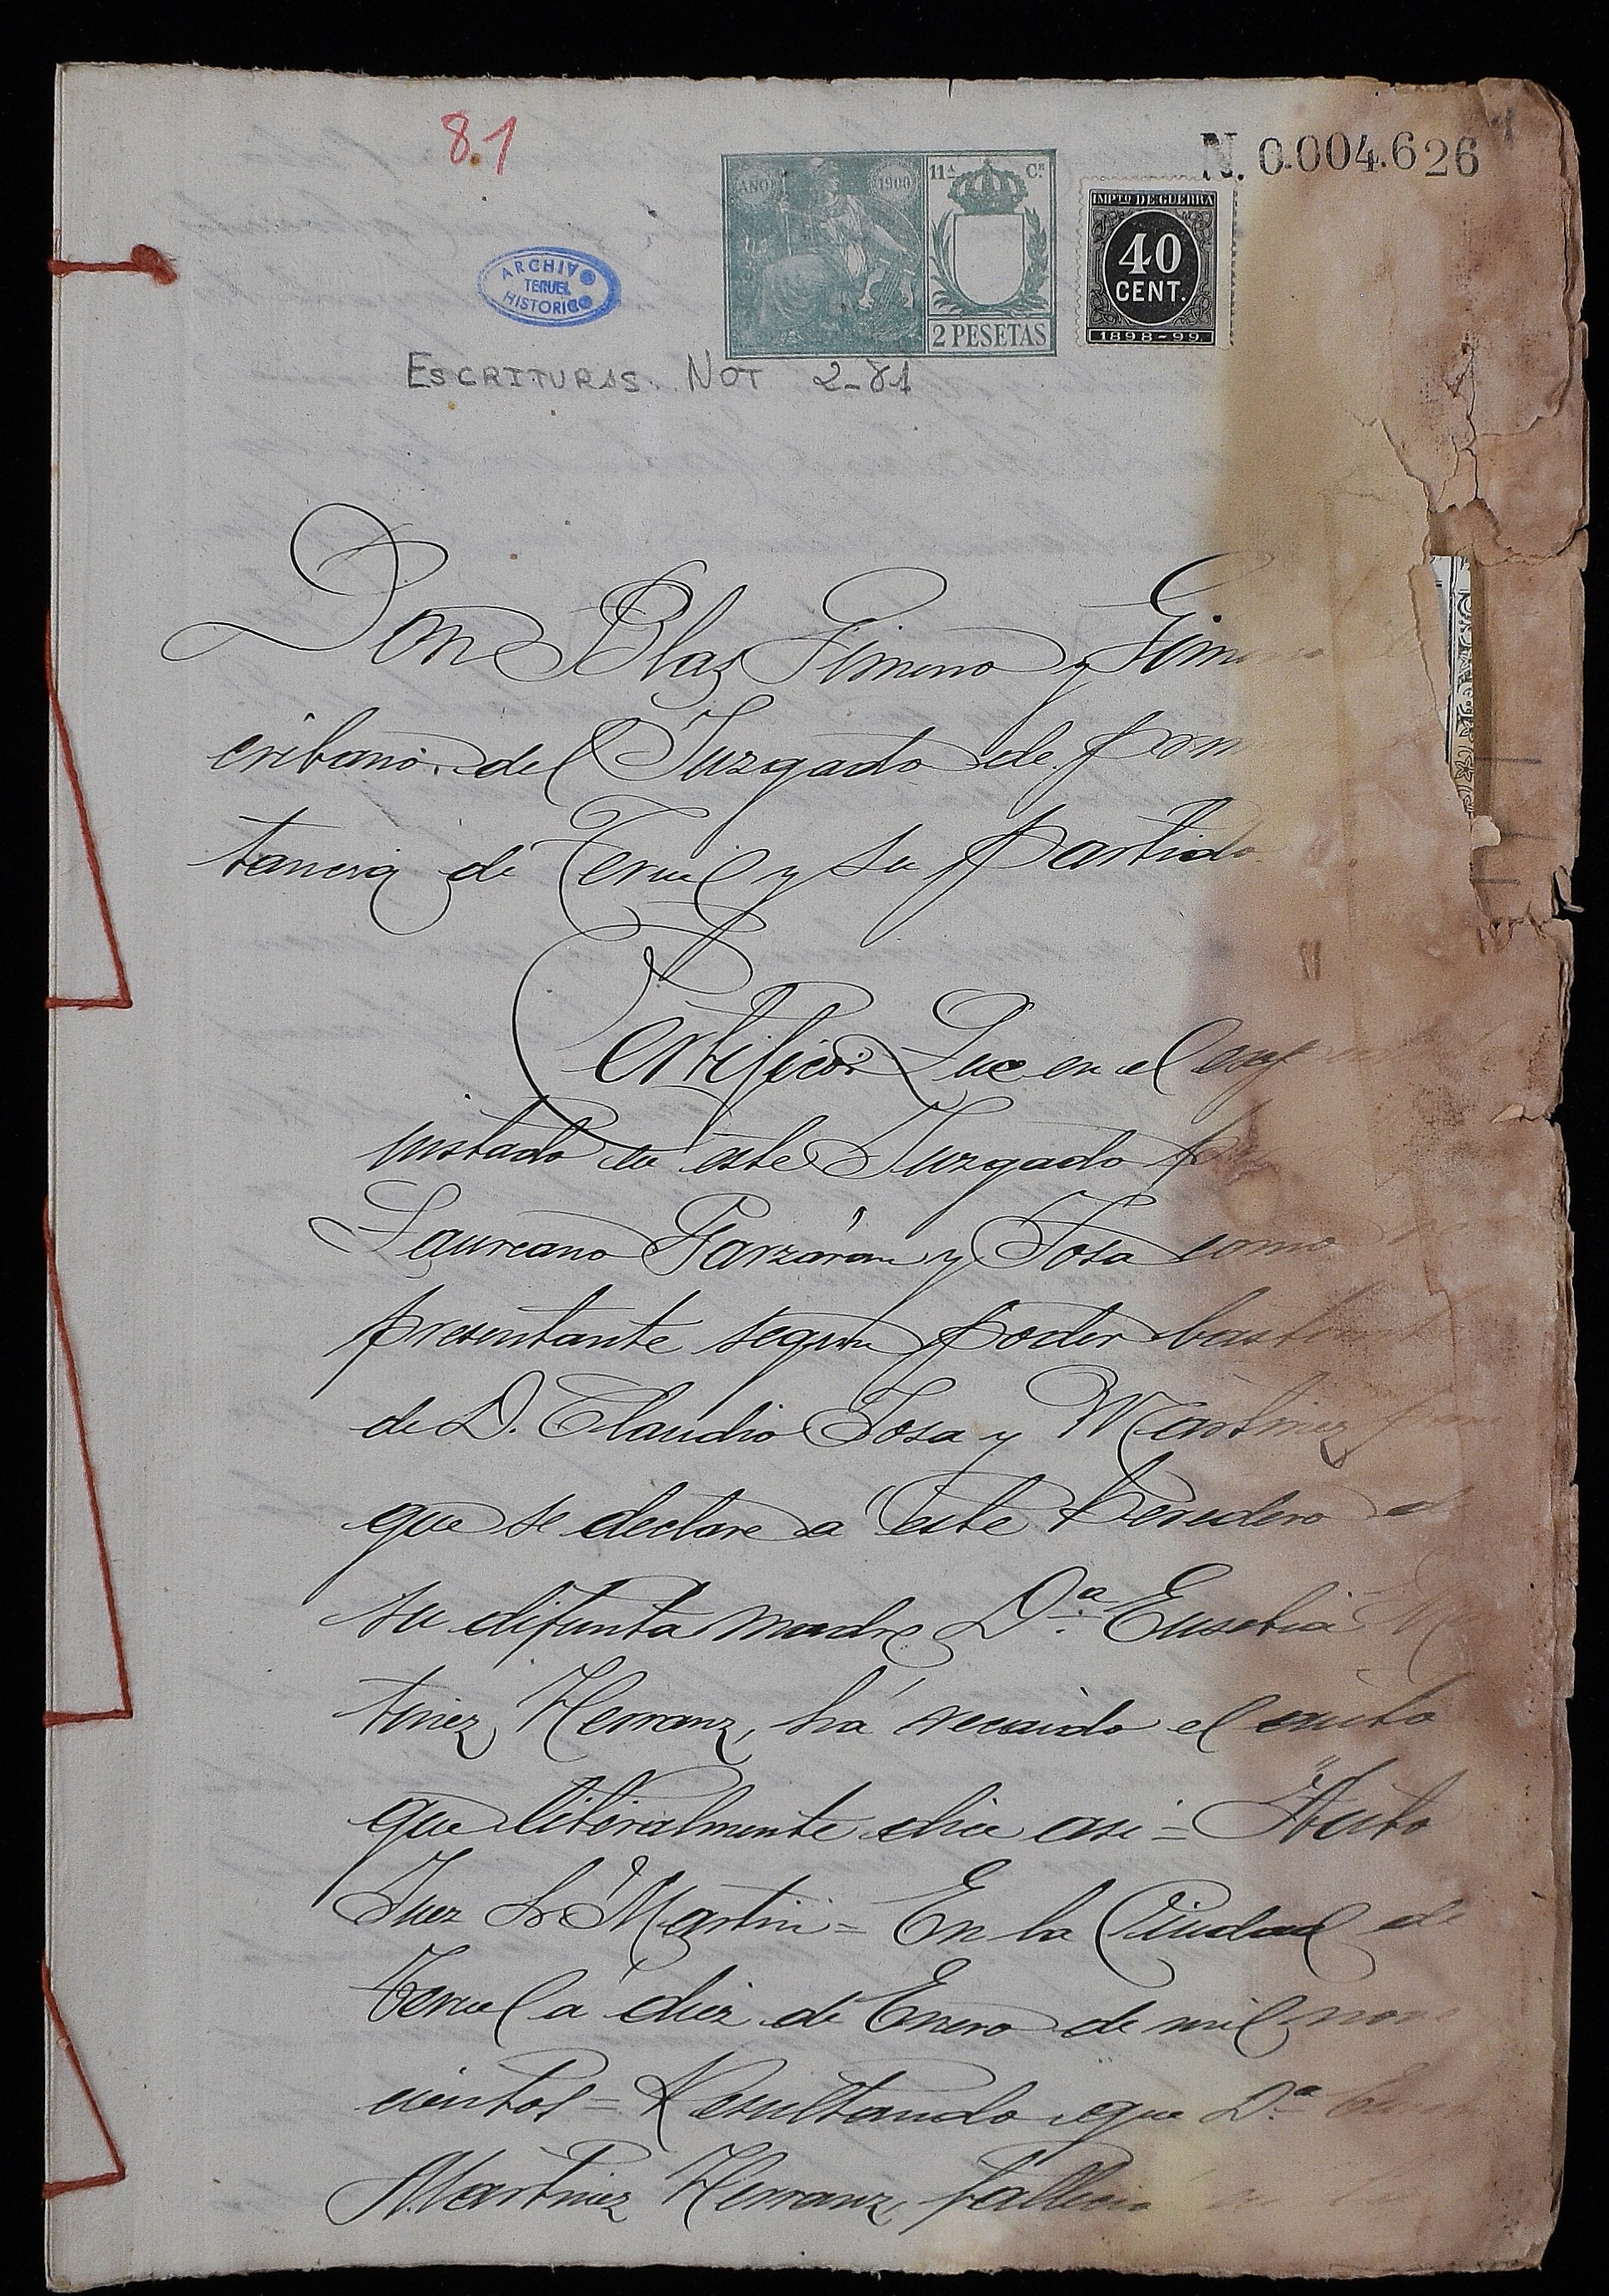 8.1
N. 0.004.626
AÑO 1900
11ª Cª
2 PESETAS
IMPTO DE GUERRA
40
CENT.
1898-99
ARCHIVO
TERUEL
HISTORICO
ESCRITURAS. NOT 2-81
Don Blas Gimeno y Gimeno
cribano del Juzgado de prim
tancia de Teruel y su partido
Certifico: Que en el exp
instado en este Juzgado por
Laureano Garzarán y Josa como
presentante según poder bastante
de D. Claudio Josa y Martinez para
que se declare a este heredero de
su difunta madre Dª Eusebia M
tinez Herranz, há recaido el auto
que literalmente dice asi = "Auto
Juez Sr Martin = En la Ciudad de
Teruel a diez de Enero de mil nove
cientos = Resultando que Dª
Martinez Herranz, falleció en